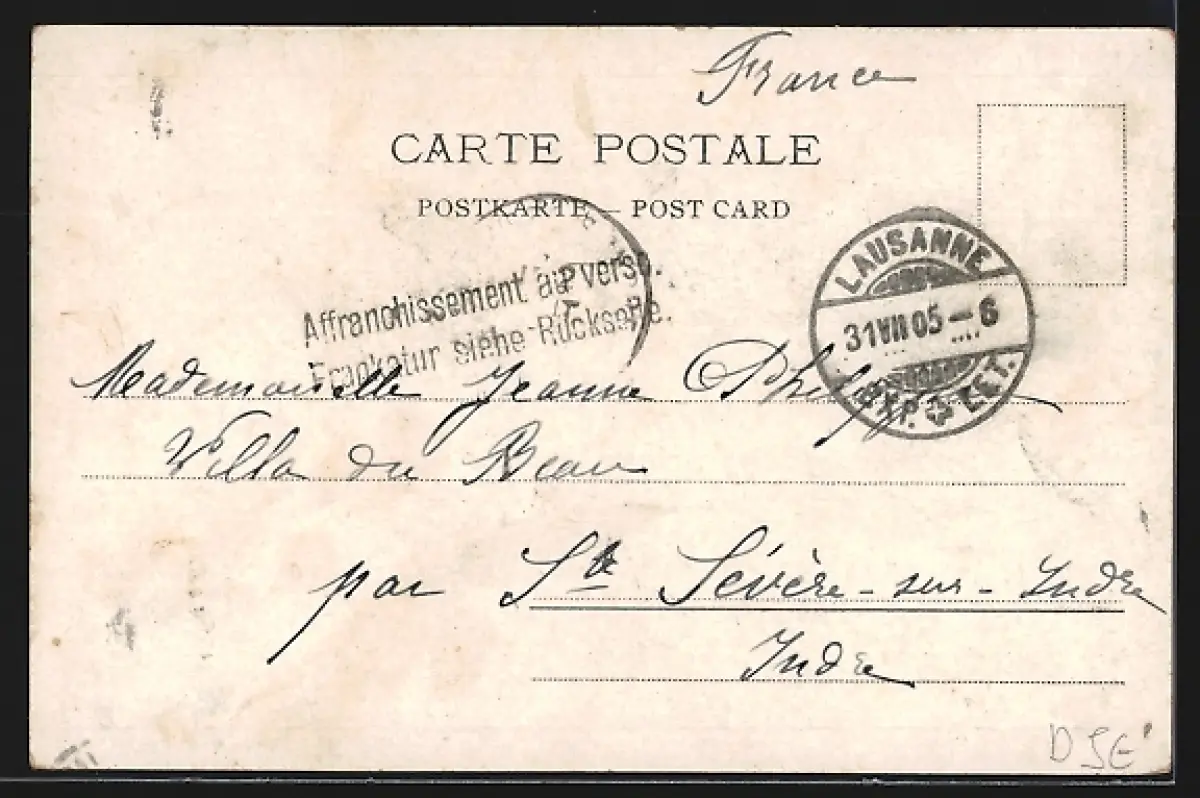 France
CARTE POSTALE
POSTKARTE — POST CARD
Affranchissement au verso.
Frankatur siehe Rückseite.
LAUSANNE
31 VII 05 – 6
EXP. LET.
Mademoiselle Jeanne
Villa du Beau
par Ste Sévère-sur-Indre
Indre